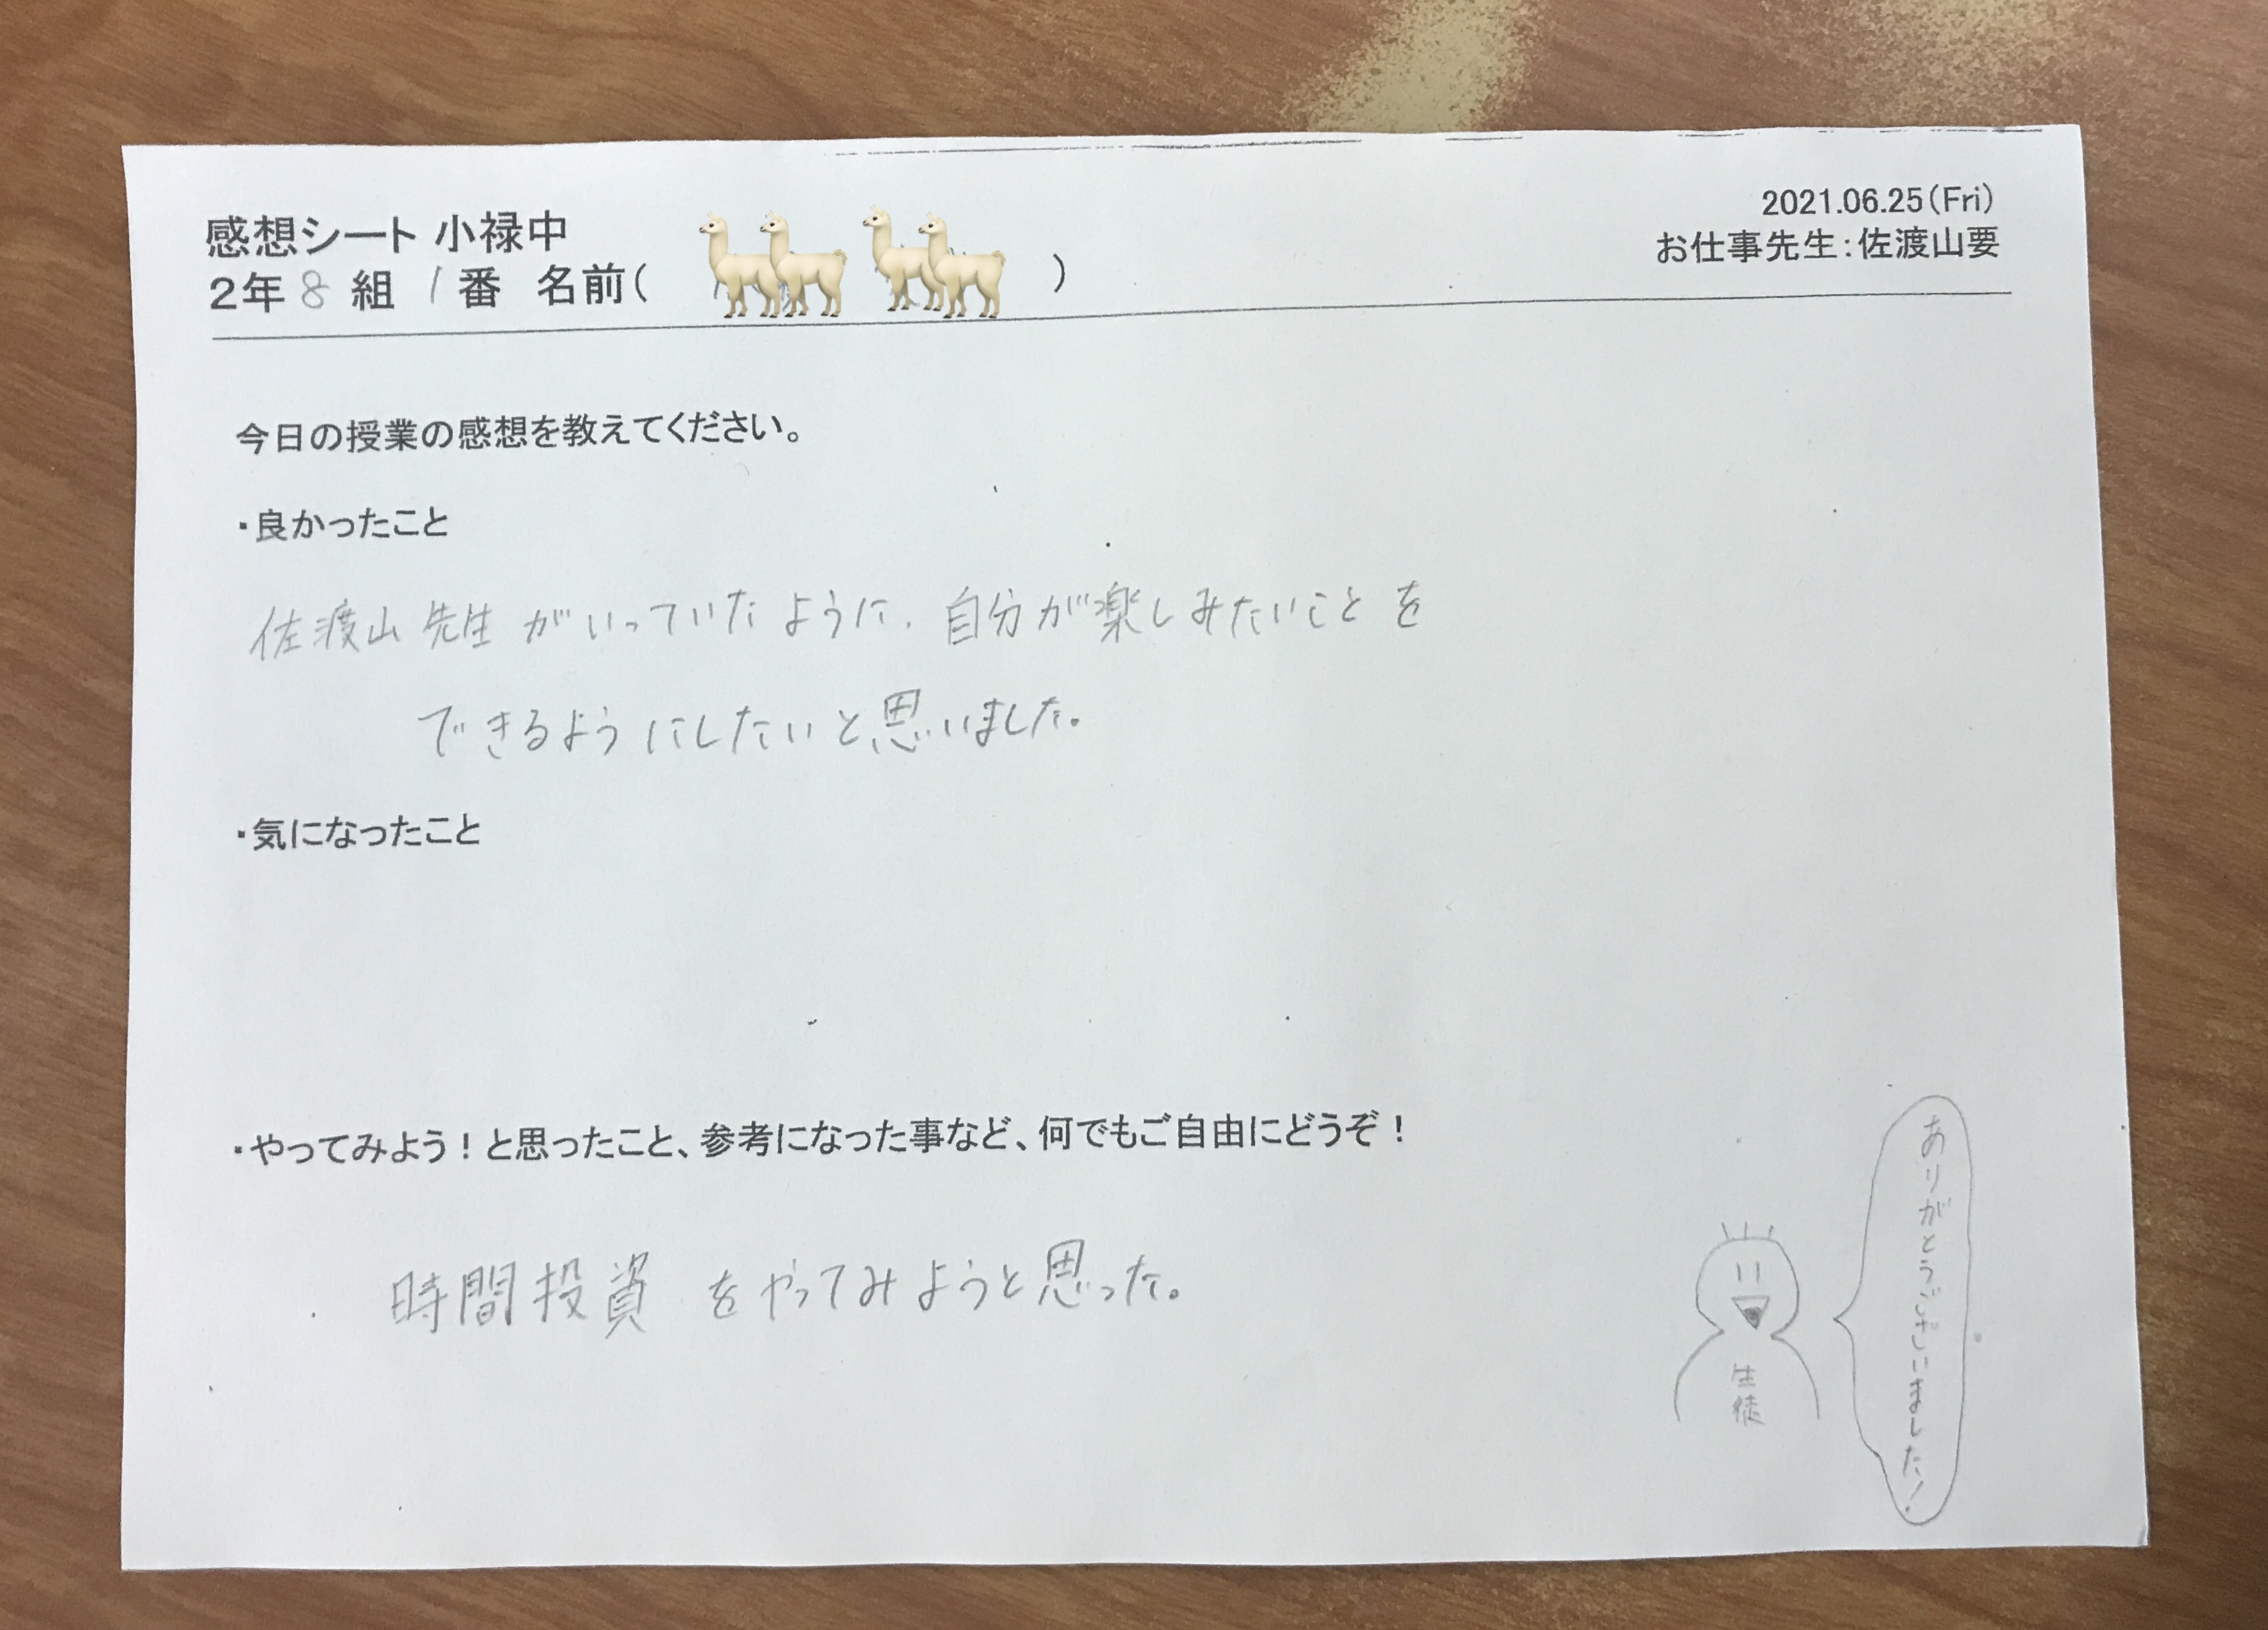 感想シート 小禄中
2年 8 組 1 番 名前( )
2021.06.25(Fri)
お仕事先生:佐渡山要
今日の授業の感想を教えてください。
・良かったこと
佐渡山先生がいっていたように、自分が楽しみたいことを
できるようにしたいと思いました。
・気になったこと
・やってみよう!と思ったこと、参考になった事など、何でもご自由にどうぞ!
時間投資をやってみようと思った。
ありがとうございました!
生徒